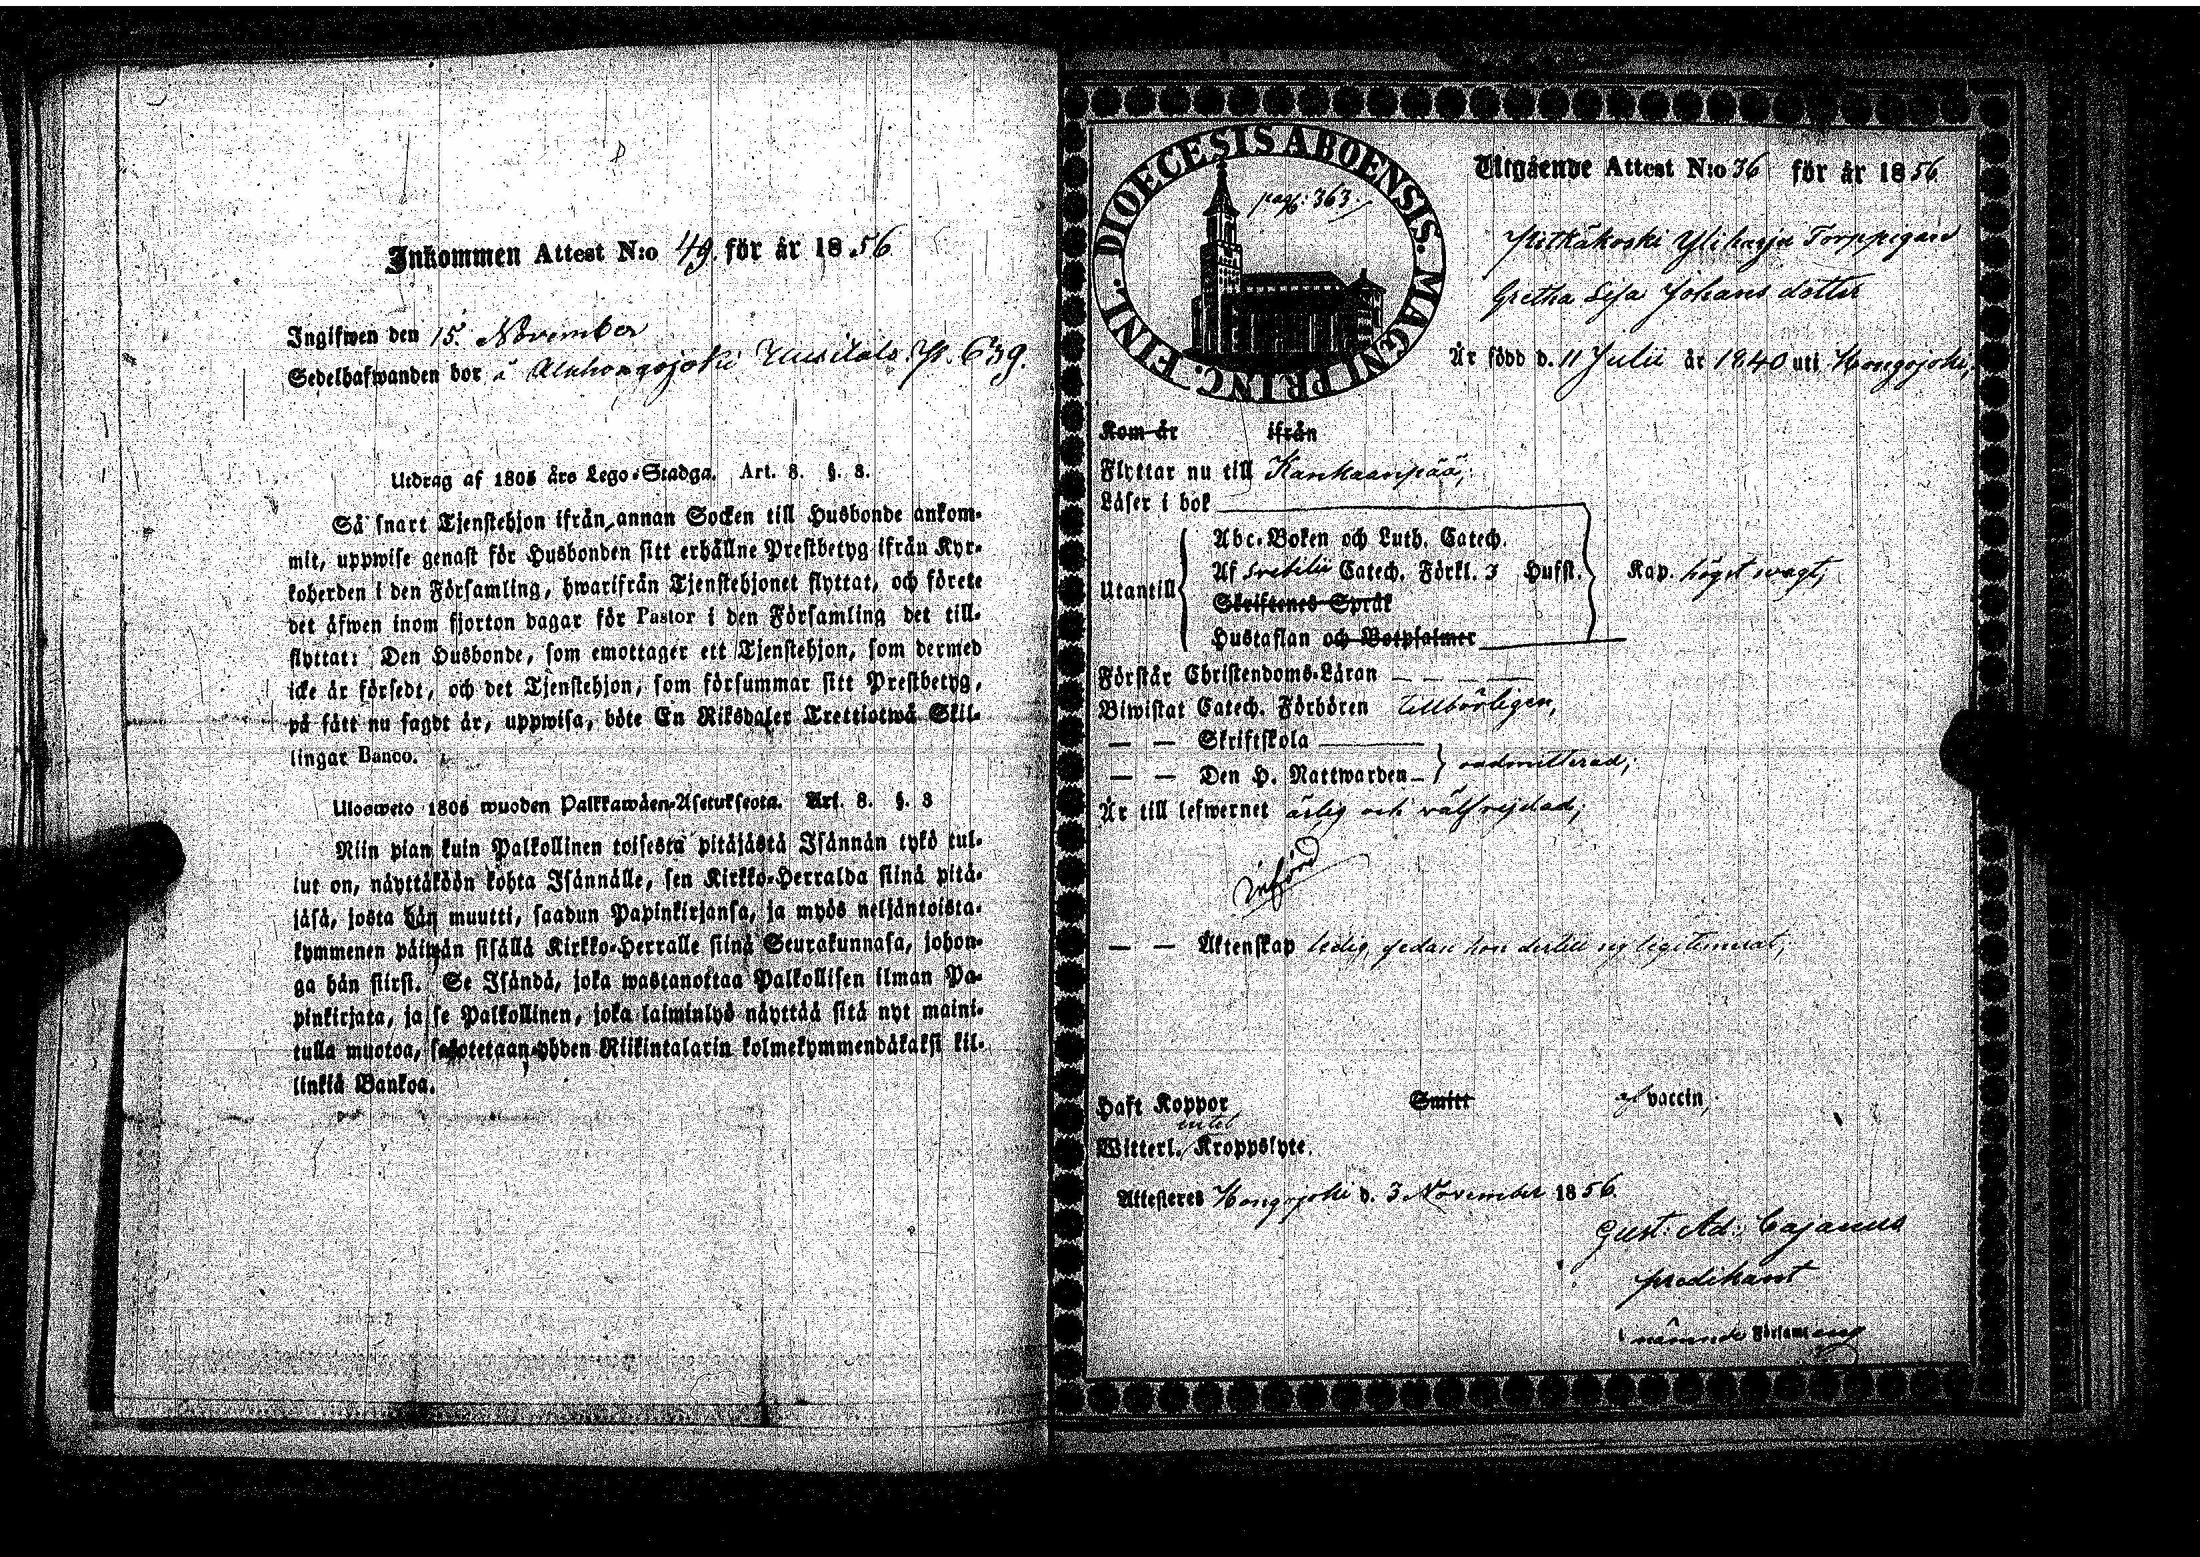 Inkommen Attest N:o 49. för år 1856
Ingifwen den 15. November
Sedelhafwanden bor å Alahongojoki Uusitalo. P. 639.
Utdrag af 1805 års Lego-Stadga. Art. 8. §. 8.
Så snart Tjenstehjon ifrån annan Socken till Husbonde ankom-
mit, uppwise genast för Husbonden sitt erhållne Prestbetyg ifrån Kyr-
koherden i den Församling, hwarifrån Tjenstehjonet flyttat, och förete
det äfwen inom fjorton dagar för Pastor i den Församling det till-
flyttat: Den Husbonde, som emottager ett Tjenstehjon, som dermed
icke är försedt, och det Tjenstehjon, som försummar sitt Prestbetyg,
på sätt nu sagdt är, uppwisa, böte En Riksdaler Trettiotwå Skil-
lingar Banco.
Ulosweto 1805 wuoden Palkkawäen-Asetuksesta. Art. 8. §. 8
Niin pian kuin Palkollinen toisesta pitäjästä Isännän tykö tul-
lut on, näyttäköön kohta Isännälle, sen Kirkko-Herralda siinä pitä-
jäsä, josta hän muutti, saadun Papinkirjansa, ja myös neljäntoista-
kymmenen päiwän sisällä Kirkko-Herralle siinä Seurakunnasa, johon-
ga hän siirsi. Se Isändä, joka wastanottaa Palkollisen ilman Pa-
pinkirjata, ja se Palkollinen, joka laiminlyö näyttää sitä nyt maini-
tulla muotoa, sakotetaan yhden Riikintalarin kolmekymmendäkaksi kil-
linkiä Bankoa.
DIOECESIS ABOENSIS. MAGNI PRINC. FINL.
pag: 363.
Utgående Attest N:o 36 för år 1856
Pitkäkoski Yliharja Torppegard
Gretha Lisa Johans dotter
Är född d. 11 Julii år 1840 uti Hongojoki,
Kom år ifrån
Flyttar nu till Kankaanpää,
Läser i bok
Utantill
Abc-Boken och Luth. Catech.
Af Svebilii Catech. Förkl. 3 Husst.
Kap. högst svagt,
Skriftenes Språk
Hustaflan och Botpsalmer
Förstår Christendoms-Läran
Biwistat Catech. Förhören tillbörligen,
— — Skriftskola
— — Den H. Nattwarden oadmitterad,
Är till lefwernet ärlig och wälfrejdad,
införd
— — Äktenskap ledig, sedan hon dertill ej legitimerat,
Haft Koppor Smitt af vaccin,
intet
Witterl. Kroppslyte.
Attesteres Hongojoki d. 3 November 1856.
Gust: Ad: Cajanus
predikant
i nämnde Församling